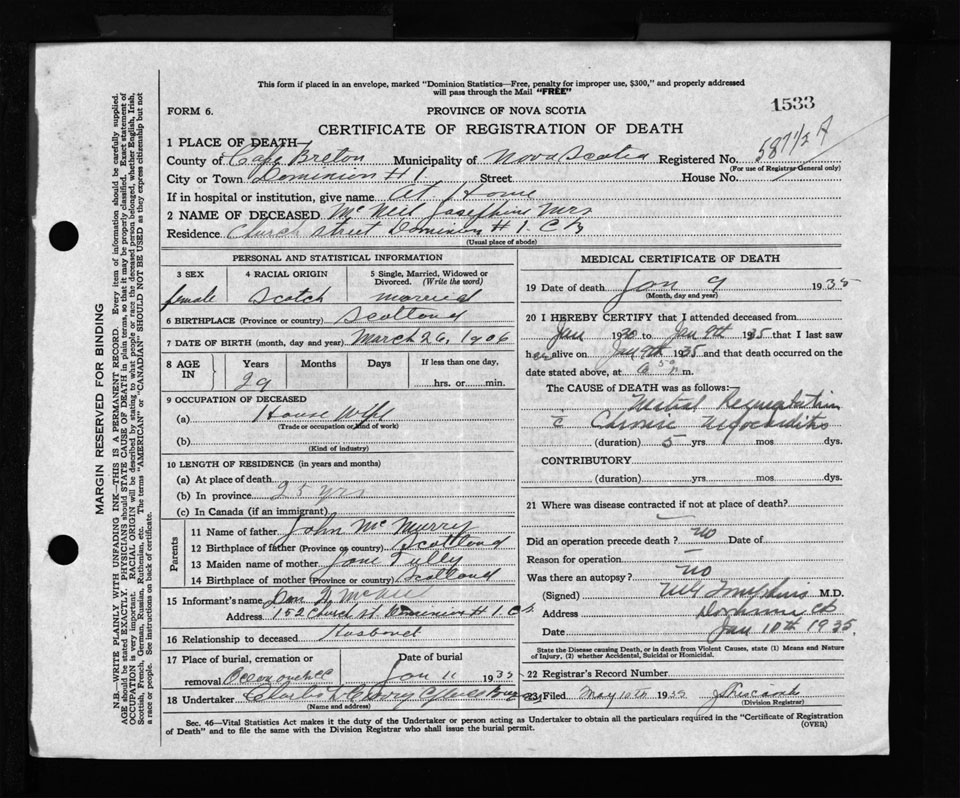 This form if placed in an envelope, marked "Dominion Statistics—Free, penalty for improper use, $300," and properly addressed
will pass through the Mail "FREE"
FORM 6. PROVINCE OF NOVA SCOTIA 1533
CERTIFICATE OF REGISTRATION OF DEATH
1 PLACE OF DEATH
County of Cape Breton Municipality of Nova Scotia Registered No. 587 1/2 A
(For use of Registrar General only)
City or Town Dominion #1 Street House No.
If in hospital or institution, give name At Home
2 NAME OF DECEASED McNeil Josephine Mrs
Residence Church Street Dominion #1. C B
(Usual place of abode)
MARGIN RESERVED FOR BINDING
N.B.—WRITE PLAINLY WITH UNFADING INK—THIS IS A PERMANENT RECORD. Every item of information should be carefully supplied.
AGE should be stated EXACTLY. PHYSICIANS should STATE CAUSE OF DEATH in plain terms, so that it may be properly classified. Exact statement of
OCCUPATION is very important. RACIAL ORIGIN will be described by stating to what people or race the deceased person belonged, whether English, Irish,
Scottish, French, German, Russian, Ruthenian, etc. The terms "AMERICAN" or "CANADIAN" SHOULD NOT BE USED as they express citizenship but not
a race or people. See instructions on back of certificate.
PERSONAL AND STATISTICAL INFORMATION
3 SEX 4 RACIAL ORIGIN 5 Single, Married, Widowed or
Divorced. (Write the word)
female Scotch married
6 BIRTHPLACE (Province or country) Scotland
7 DATE OF BIRTH (month, day and year) March 26, 1906
8 AGE IN Years Months Days If less than one day,
29 hrs. or min.
9 OCCUPATION OF DECEASED
(a) House Wife
(Trade or occupation or kind of work)
(b)
(Kind of industry)
10 LENGTH OF RESIDENCE (in years and months)
(a) At place of death
(b) In province 25 yrs
(c) In Canada (if an immigrant)
Parents
11 Name of father John McMurry
12 Birthplace of father (Province or country) Scotland
13 Maiden name of mother Jane Tully
14 Birthplace of mother (Province or country) Scotland
15 Informant's name Dan McNeil
Address 152 Church St Dominion #1. C B
16 Relationship to deceased Husband
17 Place of burial, cremation or Date of burial
removal Jan 11 1935
18 Undertaker
(Name and address)
MEDICAL CERTIFICATE OF DEATH
19 Date of death Jan 9 1935
(Month, day and year)
20 I HEREBY CERTIFY that I attended deceased from
Jan 1930 to Jan 9th 1935 that I last saw
her alive on Jan 9th 1935 and that death occurred on the
date stated above, at 6 50 m.
The CAUSE of DEATH was as follows:
Mitral Regurgitation
c Chronic Myocarditis
(duration) 5 yrs. mos dys.
CONTRIBUTORY
(duration) yrs. mos. dys.
21 Where was disease contracted if not at place of death?
Did an operation precede death? no Date of
Reason for operation
Was there an autopsy? no
(Signed) M.D.
Address Dominion C B
Date Jan 10th 1935.
State the Disease causing Death, or in death from Violent Causes, state (1) Means and Nature
of Injury, (2) whether Accidental, Suicidal or Homicidal.
22 Registrar's Record Number
23 Filed May 10th 1935
(Division Registrar)
Sec. 46—Vital Statistics Act makes it the duty of the Undertaker or person acting as Undertaker to obtain all the particulars required in the "Certificate of Registration
of Death" and to file the same with the Division Registrar who shall issue the burial permit. (OVER)